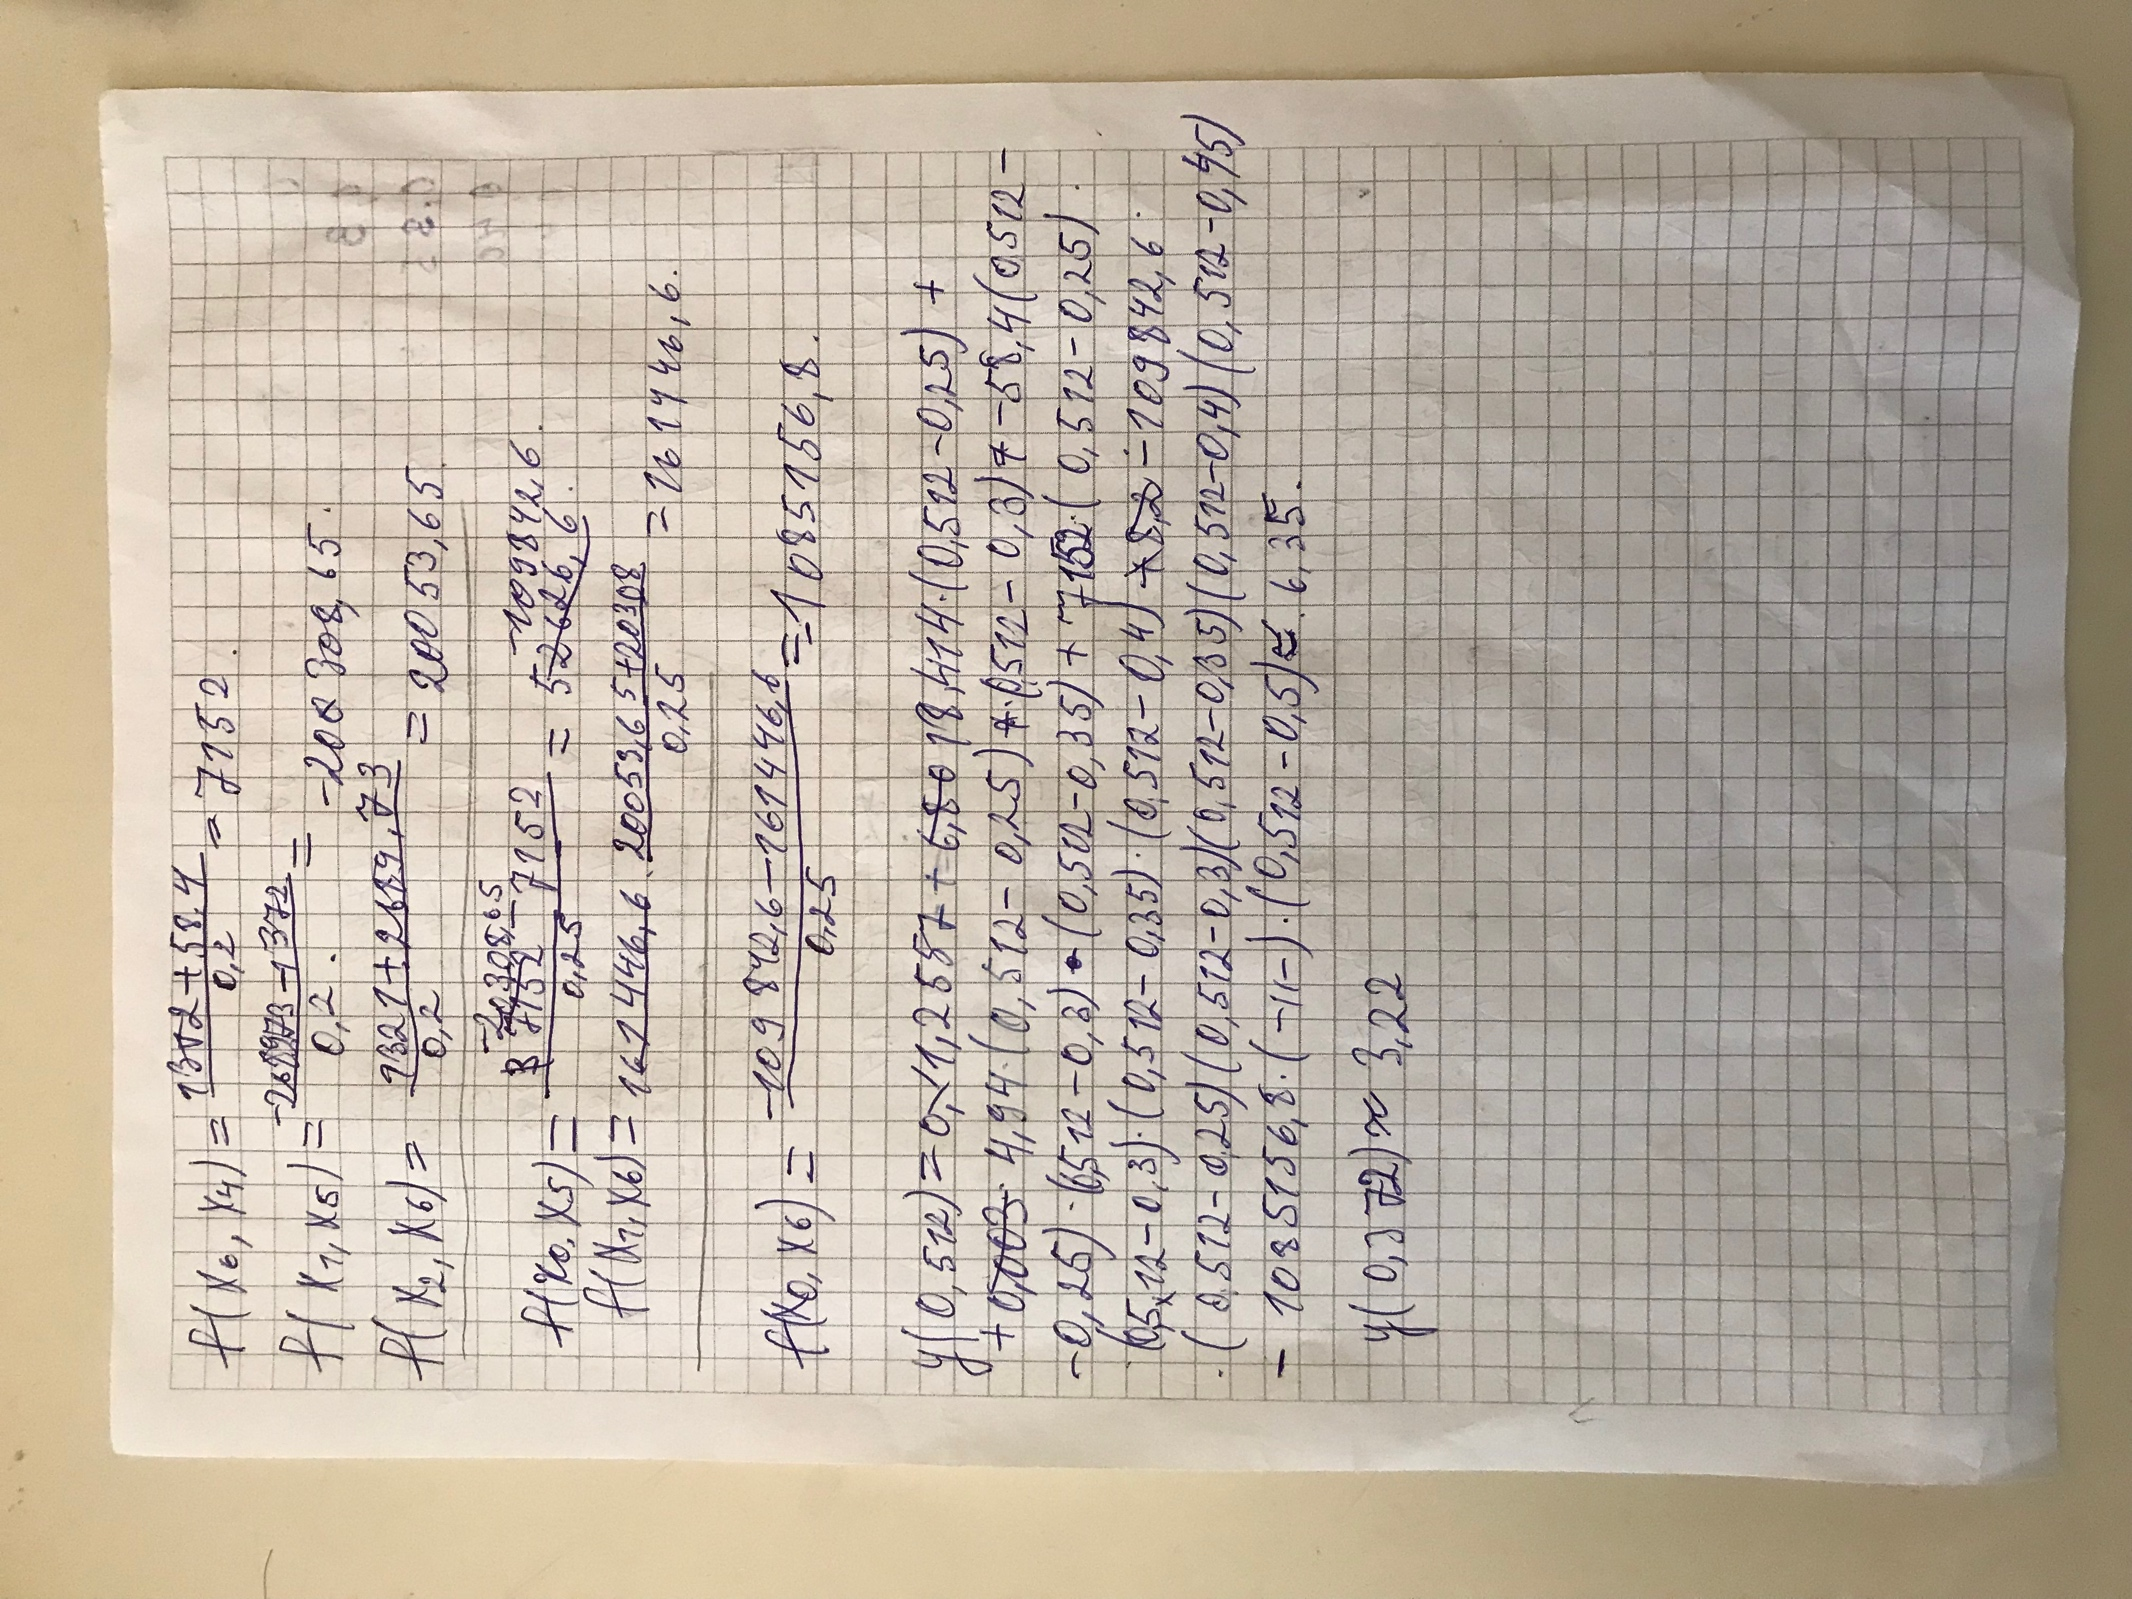 f(x0, x4) = 1372+58,4 / 0,2 = 7152.
f(x1, x5) = -2689,73-1372 / 0,2. = -20308,65.
f(x2, x6) = 1321+2689,73 / 0,2 = 20053,65.
f(x0, x5) = -20308,65-7152 / 0,25 = -109842,6.
f(x1, x6) = 20053,65+20308 / 0,25 = 161446,6.
f(x0, x6) = -109842,6-161446,6 / 0,25 = -1085156,8.
y(0,512) = 1,2557 + 18,414·(0,512-0,25) +
+ 4,94·(0,512-0,25)·(0,512-0,3) + -58,4(0,512-
-0,25)·(0,512-0,3)·(0,512-0,35) + 7152·(0,512-0,25)·
·(0,512-0,3)·(0,512-0,35)·(0,512-0,4) -109842,6·
·(0,512-0,25)(0,512-0,3)(0,512-0,35)(0,512-0,4)(0,512-0,45)
- 1085156,8·(-11-)·(0,512-0,5) ≈ 6,35.
y(0,372) ≈ 3,22